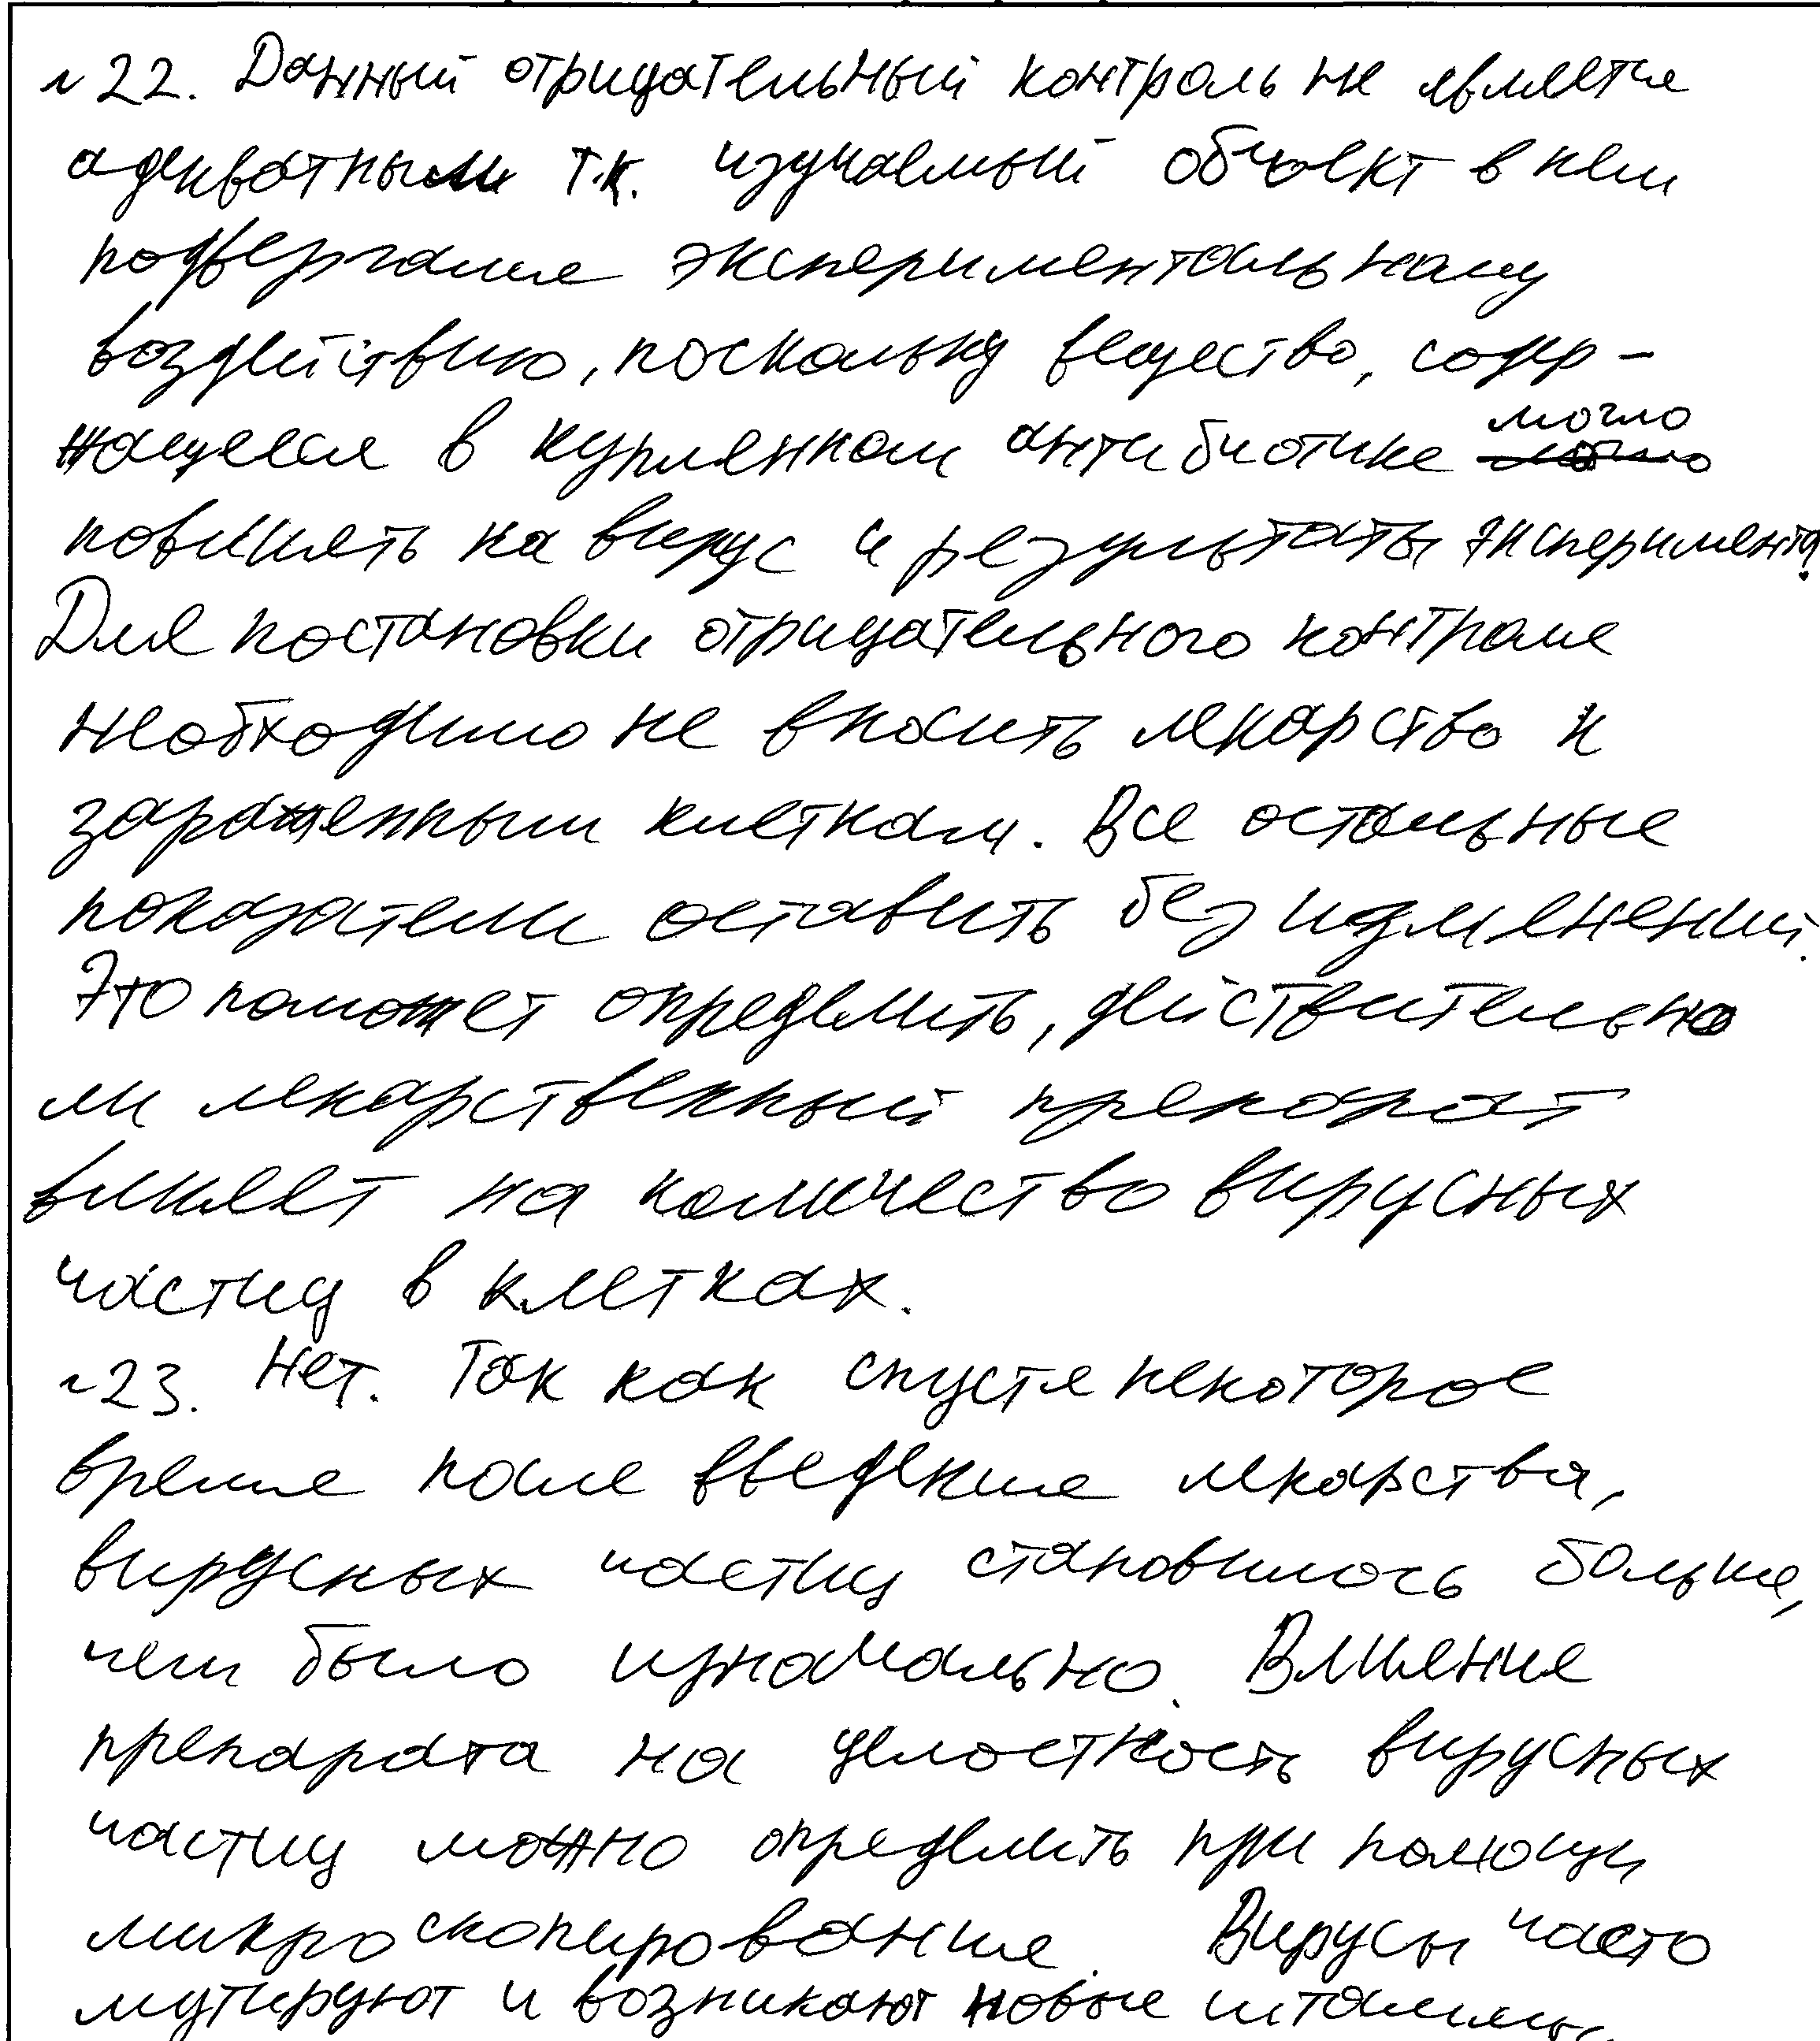 №22. Данный отрицательный контроль не является
адекватным т.к. изучаемый объект в нем
подвергался экспериментальному
воздействию, поскольку вещество, содер-
жащееся в купленном антибиотике могло
повлиять на вирус и результаты эксперимента.
Для постановки отрицательного контроля
необходимо не вносить лекарство к
зараженным клеткам. Все остальные
показатели оставить без изменений.
Это поможет определить, действительно
ли лекарственный препарат
влияет на количество вирусных
частиц в клетках.
№23. Нет. Так как спустя некоторое
время после введения лекарства,
вирусных частиц становилось больше,
чем было изначально. Влияние
препарата на целостность вирусных
частиц можно определить при помощи
микроскопирования. Вирусы часто
мутируют и возникают новые штаммы.